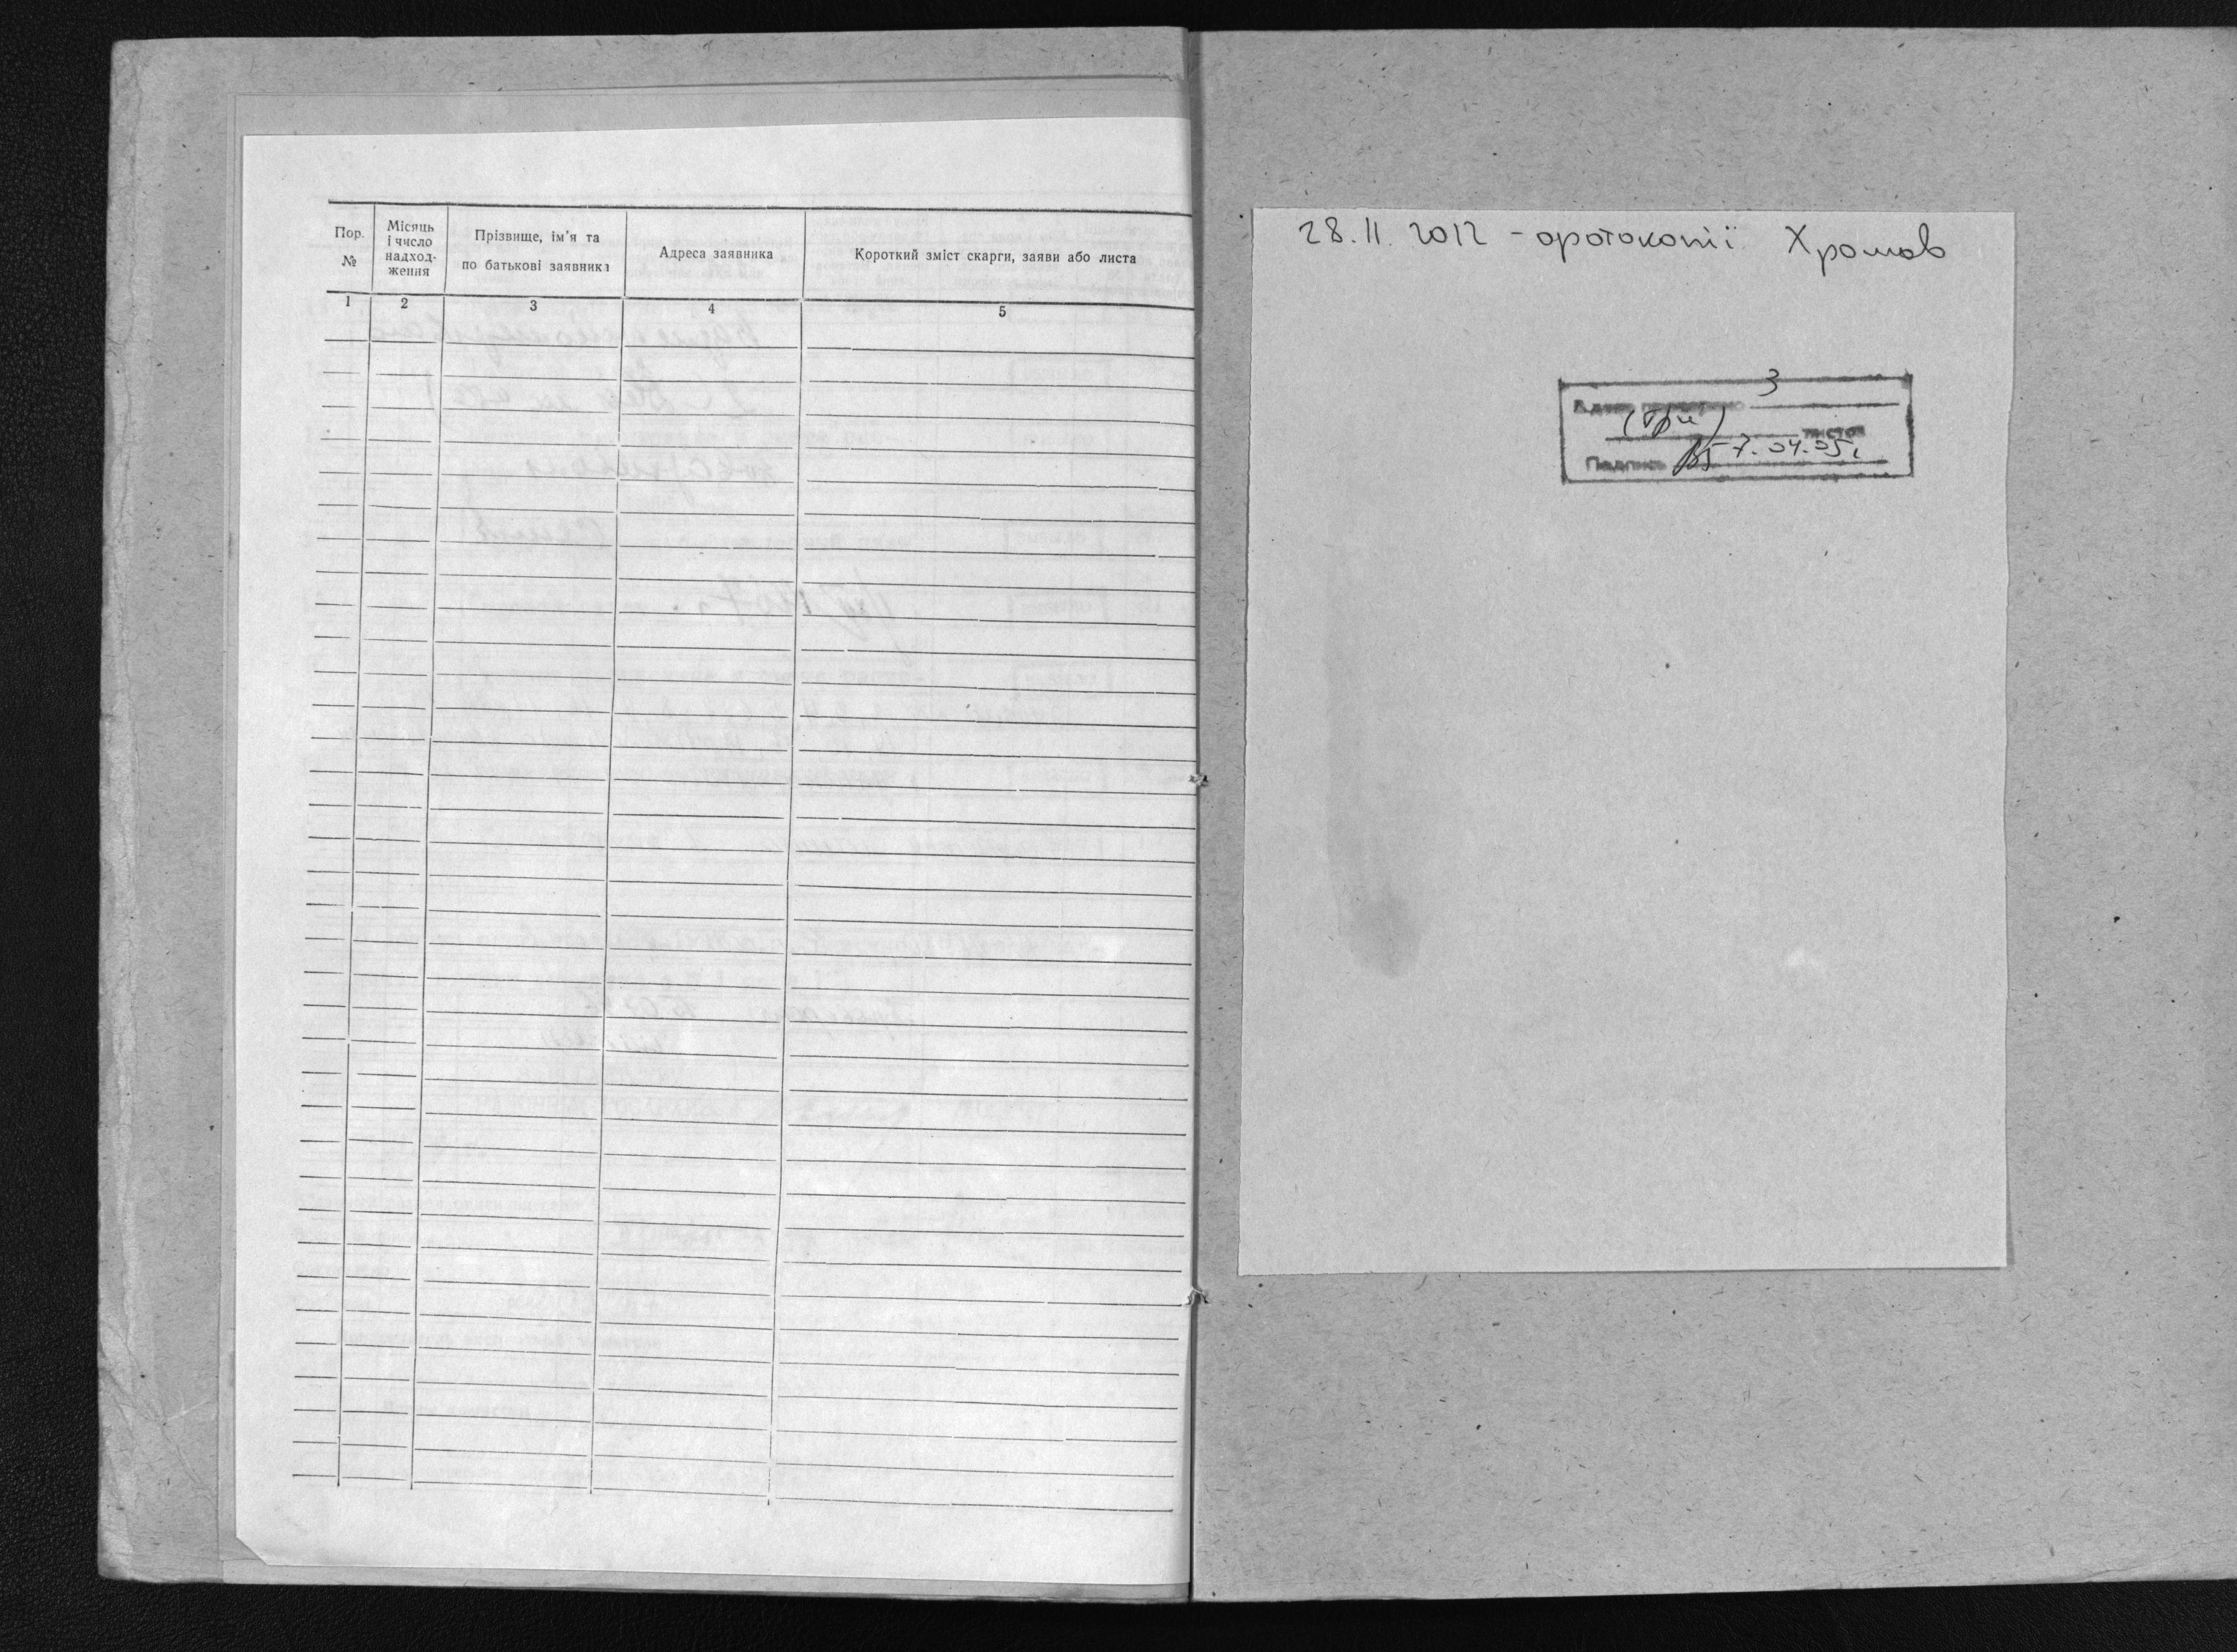 Пор.
№
Місяць
і число
надход-
ження
Прізвище, ім'я та
по батькові заявника
Адреса заявника
Короткий зміст скарги, заяви або листа
1 2 3 4 5
28.11.2012 - фотокопії Хромов
3
(три)
листов
Подпись 7.04.05